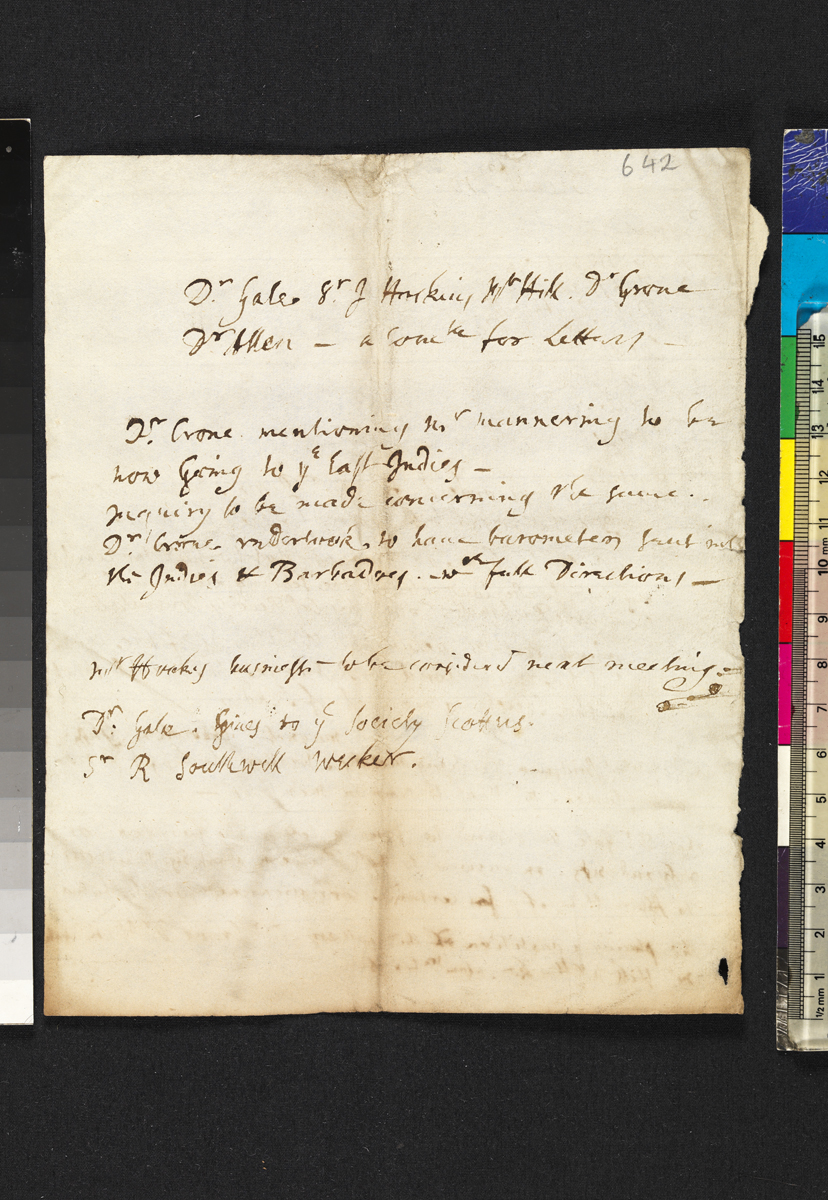 642
Dr. Gale. Sr. J Hoskins Mr Hill. Dr Grone
Dr Allen — a Comtte for Letters —
Dr. Crone. mentioning mr mannering to be
now Going to ye East Indies —
Inquiry to be made concerning the same..
Dr. Crone. vndertook. to haue barometers sent into
the Indies & Barbadoes. wth full Directions —
mr Hookes business to be considerd next meeting.
Dr. Gale. Giues to ye Society
Sr R Southwell Wecker.